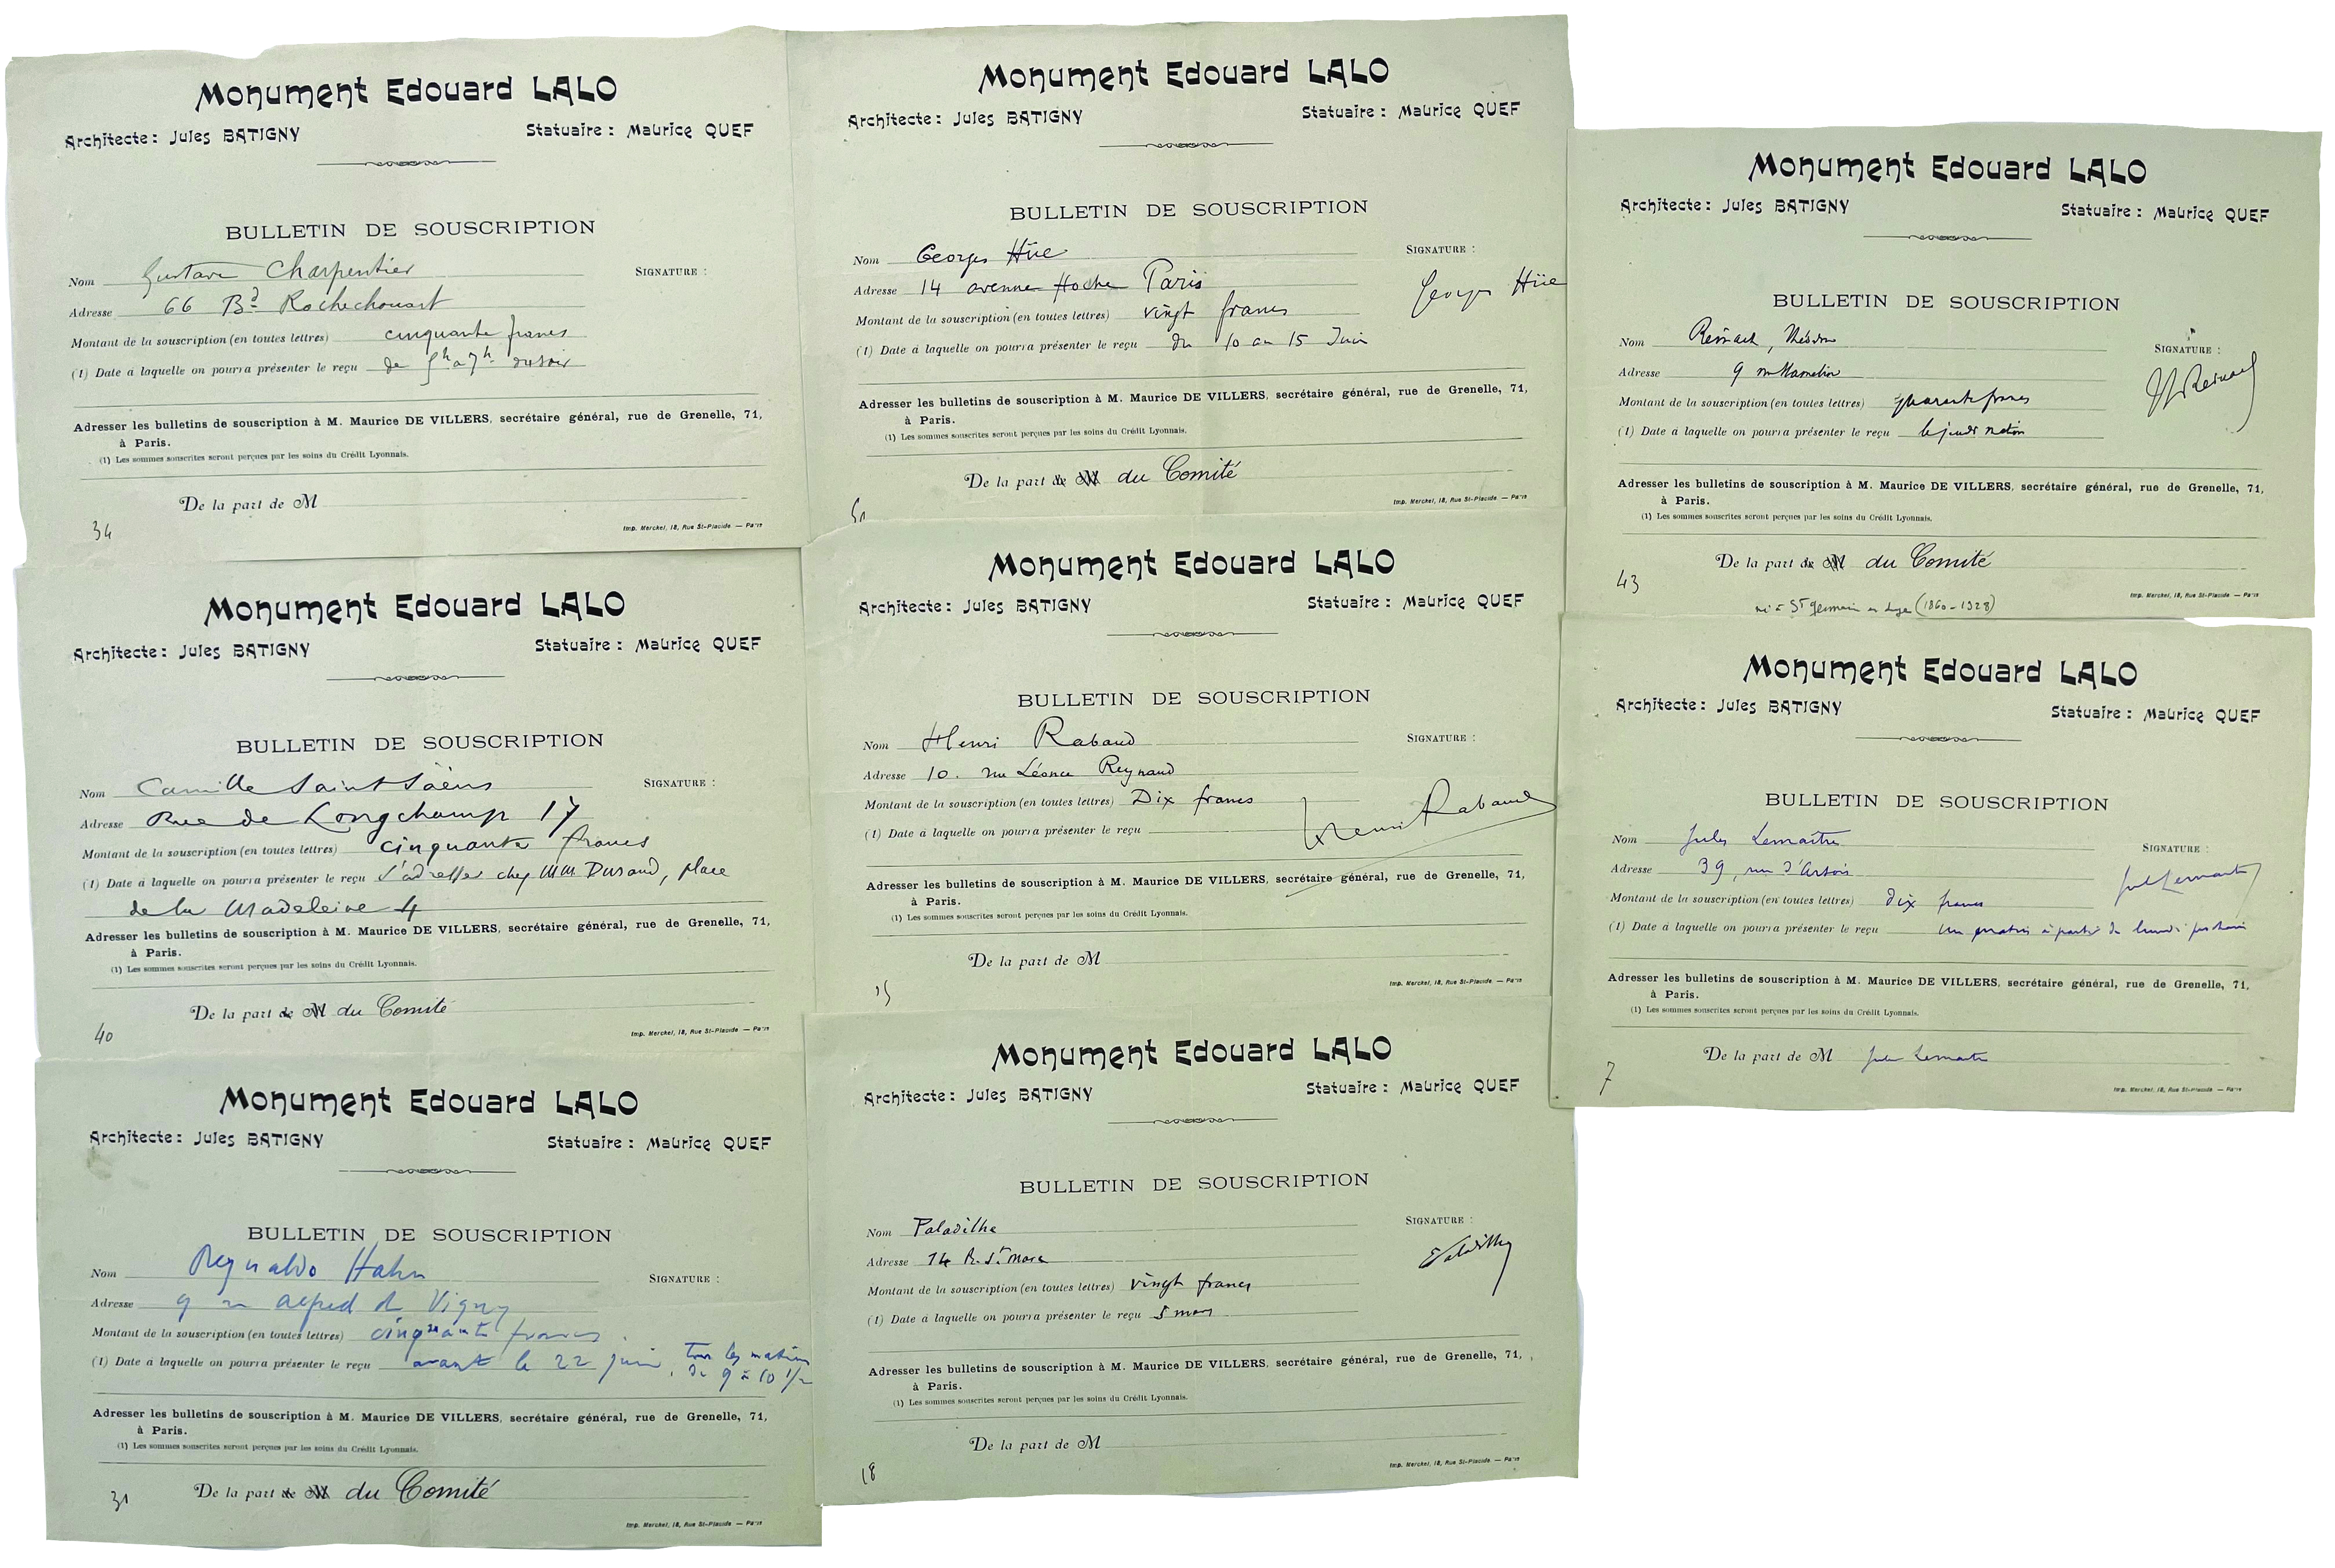 Monument Edouard LALO
Architecte : Jules BATIGNY
Statuaire : Maurice QUEF
BULLETIN DE SOUSCRIPTION
Nom Gustave Charpentier
SIGNATURE :
Adresse 66 Bd Rochechouart
Montant de la souscription (en toutes lettres) cinquante francs
(1) Date à laquelle on pourra présenter le reçu de 5h a 7h du soir
Adresser les bulletins de souscription à M. Maurice DE VILLERS, secrétaire général, rue de Grenelle, 71,
à Paris.
(1) Les sommes souscrites seront perçues par les soins du Crédit Lyonnais.
De la part de M
34
Imp. Merckel, 18, Rue St-Placide — Paris
Monument Edouard LALO
Architecte : Jules BATIGNY
Statuaire : Maurice QUEF
BULLETIN DE SOUSCRIPTION
Nom Camille Saint-Saëns
SIGNATURE :
Adresse Rue de Longchamp 17
Montant de la souscription (en toutes lettres) cinquante francs
(1) Date à laquelle on pourra présenter le reçu s'adresser chez MM Durand, place
de la Madeleine 4
Adresser les bulletins de souscription à M. Maurice DE VILLERS, secrétaire général, rue de Grenelle, 71,
à Paris.
(1) Les sommes souscrites seront perçues par les soins du Crédit Lyonnais.
De la part de M du Comité
40
Imp. Merckel, 18, Rue St-Placide — Paris
Monument Edouard LALO
Architecte : Jules BATIGNY
Statuaire : Maurice QUEF
BULLETIN DE SOUSCRIPTION
Nom Reynaldo Hahn
SIGNATURE :
Adresse 9 r alfred de Vigny
Montant de la souscription (en toutes lettres) cinquante francs.
(1) Date à laquelle on pourra présenter le reçu avant le 22 juin, tous les matins
de 9 à 10 1/2
Adresser les bulletins de souscription à M. Maurice DE VILLERS, secrétaire général, rue de Grenelle, 71,
à Paris.
(1) Les sommes souscrites seront perçues par les soins du Crédit Lyonnais.
De la part de M du Comité
31
Imp. Merckel, 18, Rue St-Placide — Paris
Monument Edouard LALO
Architecte : Jules BATIGNY
Statuaire : Maurice QUEF
BULLETIN DE SOUSCRIPTION
Nom Georges Hüe
SIGNATURE :
Adresse 14 avenue Hoche Paris
Georges Hüe
Montant de la souscription (en toutes lettres) vingt francs
(1) Date à laquelle on pourra présenter le reçu du 10 au 15 Juin
Adresser les bulletins de souscription à M. Maurice DE VILLERS, secrétaire général, rue de Grenelle, 71,
à Paris.
(1) Les sommes souscrites seront perçues par les soins du Crédit Lyonnais.
De la part de M du Comité
Imp. Merckel, 18, Rue St-Placide — Paris
Monument Edouard LALO
Architecte : Jules BATIGNY
Statuaire : Maurice QUEF
BULLETIN DE SOUSCRIPTION
Nom Henri Rabaud
SIGNATURE :
Adresse 10. rue Léonce Reynaud
Montant de la souscription (en toutes lettres) Dix francs
Henri Rabaud
(1) Date à laquelle on pourra présenter le reçu
Adresser les bulletins de souscription à M. Maurice DE VILLERS, secrétaire général, rue de Grenelle, 71,
à Paris.
(1) Les sommes souscrites seront perçues par les soins du Crédit Lyonnais.
De la part de M
15
Imp. Merckel, 18, Rue St-Placide — Paris
Monument Edouard LALO
Architecte : Jules BATIGNY
Statuaire : Maurice QUEF
BULLETIN DE SOUSCRIPTION
Nom Paladilhe
SIGNATURE :
Adresse 14 R. St. Marc
E Paladilhe
Montant de la souscription (en toutes lettres) vingt francs
(1) Date à laquelle on pourra présenter le reçu 5 mars
Adresser les bulletins de souscription à M. Maurice DE VILLERS, secrétaire général, rue de Grenelle, 71,
à Paris.
(1) Les sommes souscrites seront perçues par les soins du Crédit Lyonnais.
De la part de M
18
Imp. Merckel, 18, Rue St-Placide — Paris
Monument Edouard LALO
Architecte : Jules BATIGNY
Statuaire : Maurice QUEF
BULLETIN DE SOUSCRIPTION
Nom Reinach, Théodore
SIGNATURE :
Adresse 9 rue Hamelin
Th Reinach
Montant de la souscription (en toutes lettres) quarante francs
(1) Date à laquelle on pourra présenter le reçu le jeudi matin
Adresser les bulletins de souscription à M. Maurice DE VILLERS, secrétaire général, rue de Grenelle, 71,
à Paris.
(1) Les sommes souscrites seront perçues par les soins du Crédit Lyonnais.
De la part de M du Comité
43
Imp. Merckel, 18, Rue St-Placide — Paris
né à St Germain en Laye (1860-1928)
Monument Edouard LALO
Architecte : Jules BATIGNY
Statuaire : Maurice QUEF
BULLETIN DE SOUSCRIPTION
Nom Jules Lemaître
SIGNATURE :
Adresse 39, rue d'Artois
Jules Lemaître
Montant de la souscription (en toutes lettres) dix francs
(1) Date à laquelle on pourra présenter le reçu un matin à partir de lundi prochain
Adresser les bulletins de souscription à M. Maurice DE VILLERS, secrétaire général, rue de Grenelle, 71,
à Paris.
(1) Les sommes souscrites seront perçues par les soins du Crédit Lyonnais.
De la part de M Jules Lemaître
7
Imp. Merckel, 18, Rue St-Placide — Paris